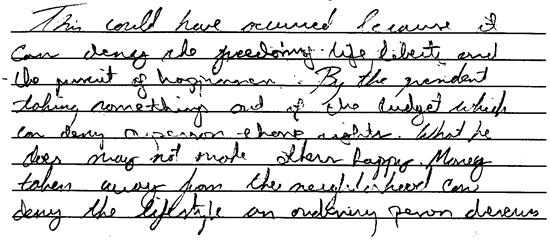 This could have occurred because it
can deny the freedoms life liberty and
the pursuit of happiness. By the president
taking something out of the budget which
can deny a person those rights. What he
does may not make others happy. Money
taken away from the neighborhood can
deny the lifestyle an ordinary person deserves